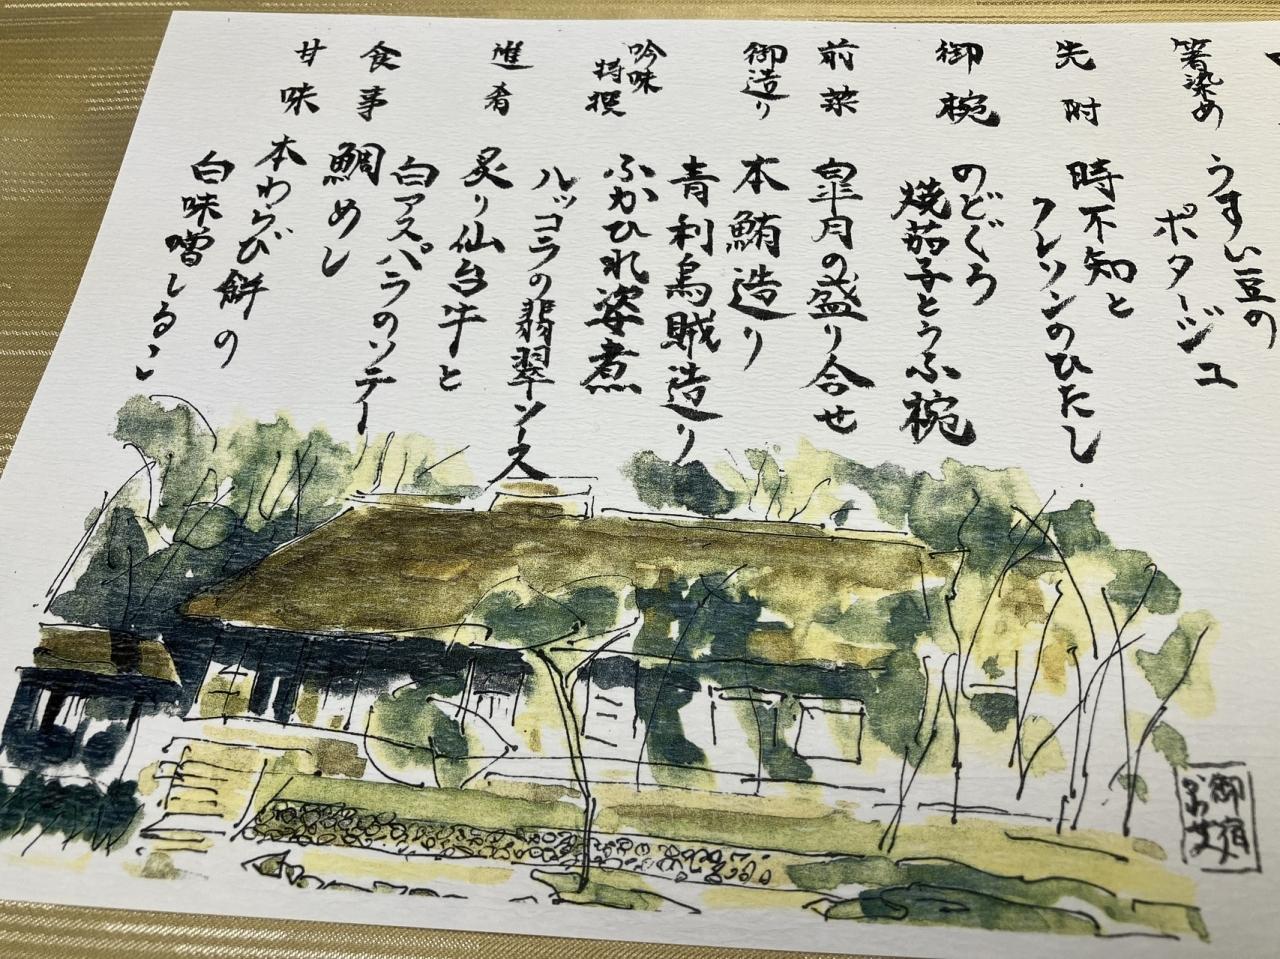 箸染め
うすい豆の
ポタージュ
先附
時不知と
クレソンのひたし
御椀
のどぐろ
焼茄子とうふ椀
前菜
皐月の盛り合せ
御造り
本鮪造り
青利烏賊造り
吟味
特撰
ふかひれ姿煮
ルッコラの翡翠ソース
進肴
炙り仙台牛と
白アスパラのソテー
食事
鯛めし
甘味
本わらび餅の
白味噌しるこ
御宿